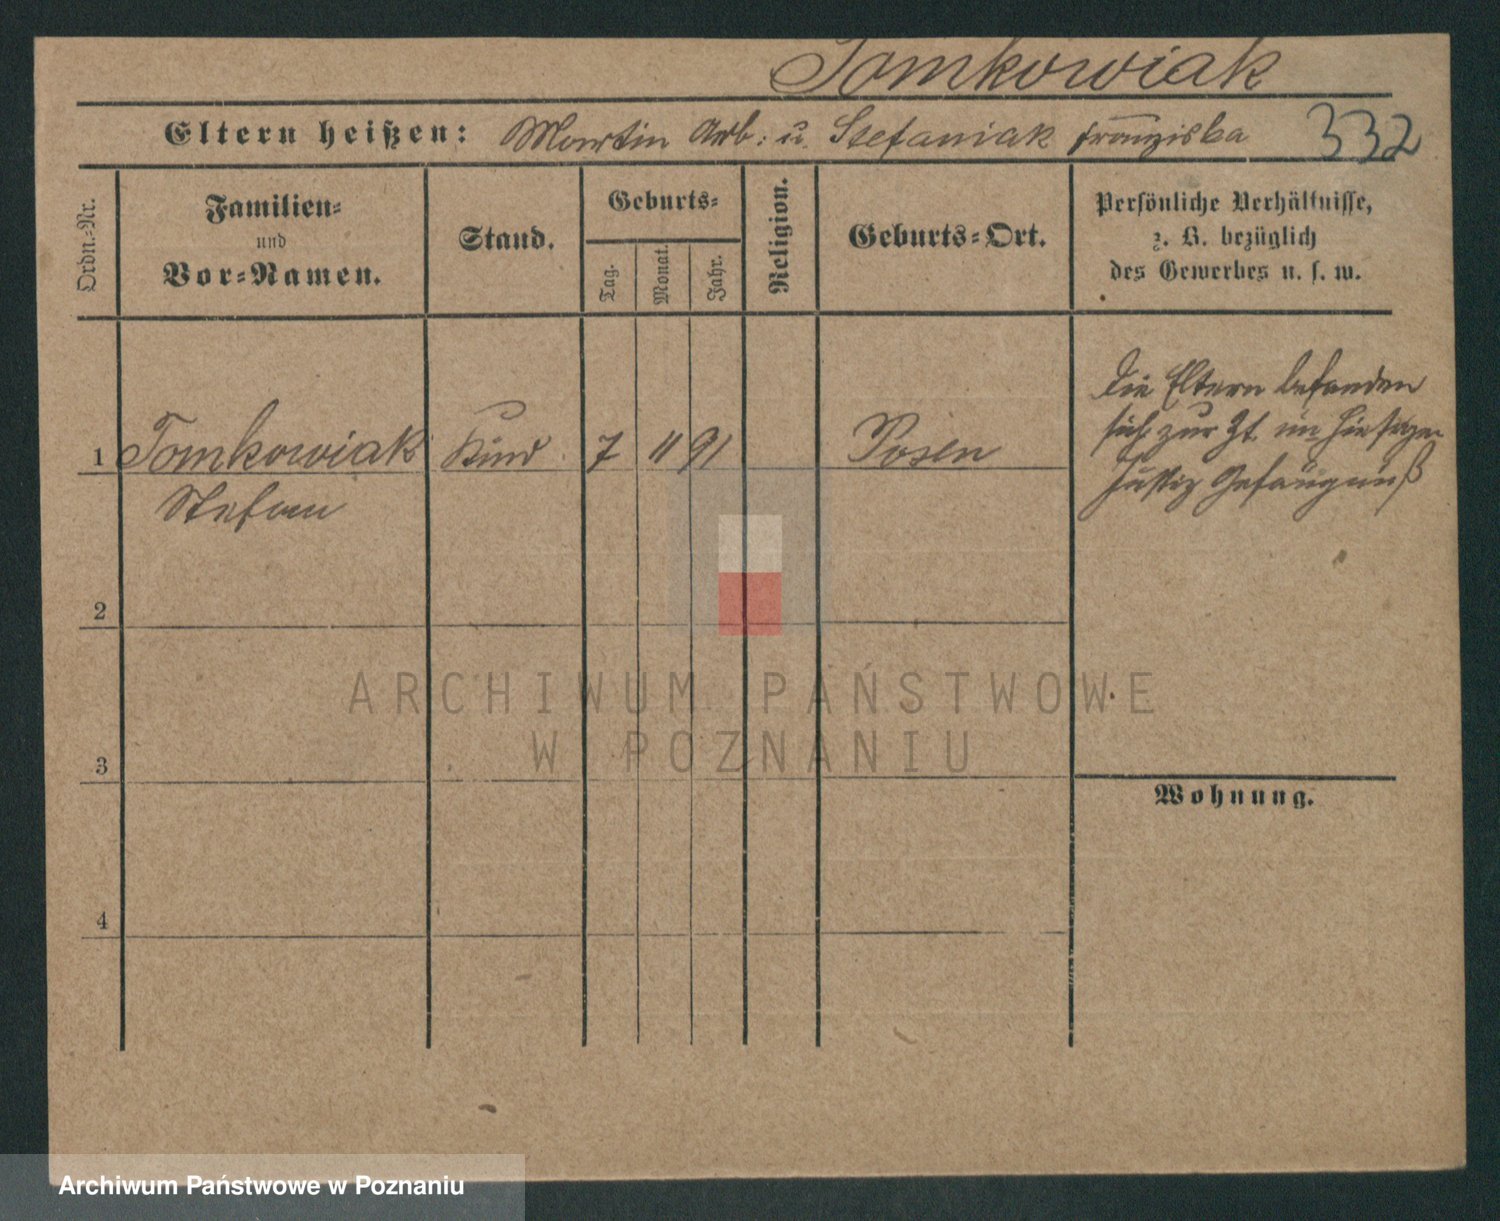 Tomkowiak
Eltern heißen: Martin Arb: u. Stefaniak Franziska 332
Ordn.-Nr.
Familien-
und
Vor-Namen.
Stand.
Geburts-
Tag.
Monat.
Jahr.
Religion.
Geburts-Ort.
Persönliche Verhältnisse,
z. B. bezüglich
des Gewerbes u. s. w.
1 Tomkowiak Kind 7 11 91 Posen
Stefan
Die Eltern befanden
sich zur Zt. im hiesigen
Justiz Gefängniß
2
3
4
Wohnung.
ARCHIWUM PAŃSTWOWE
W POZNANIU
Archiwum Państwowe w Poznaniu